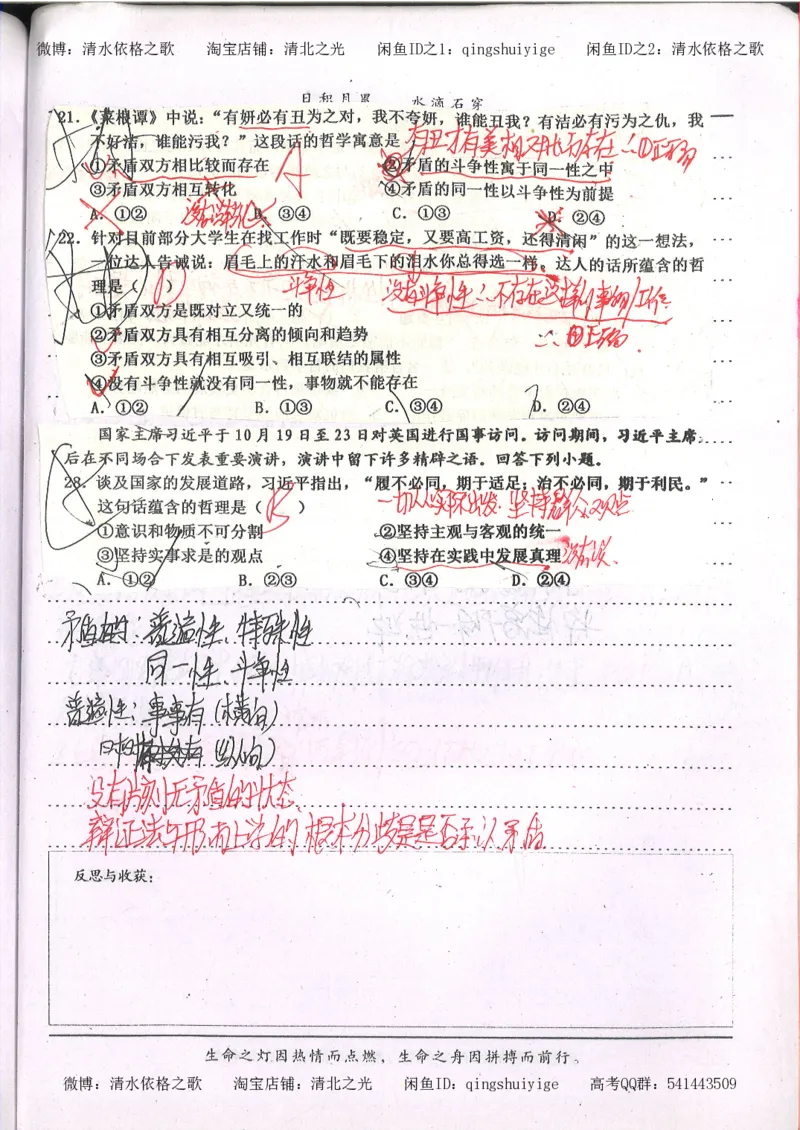 微博：清水依格之歌 淘宝店铺：清北之光 闲鱼ID之1：qingshuiyige 闲鱼ID之2：清水依格之歌
日积月累 水滴石穿
21．《菜根谭》中说：“有妍必有丑为之对，我不夸妍，谁能丑我？有洁必有污为之仇，我
不好洁，谁能污我？”这段话的哲学寓意是
①矛盾双方相比较而存在 ②矛盾的斗争性寓于同一性之中
A
③矛盾双方相互转化 ④矛盾的同一性以斗争性为前提
A．①② B．③④ C．①③ D．②④
22．针对目前部分大学生在找工作时“既要稳定，又要高工资，还得清闲”的这一想法，
一位达人告诫说：眉毛上的汗水和眉毛下的泪水你总得选一样。达人的话所蕴含的哲
理是（ D ） 斗争性
①矛盾双方是既对立又统一的
②矛盾双方具有相互分离的倾向和趋势
③矛盾双方具有相互吸引、相互联结的属性
④没有斗争性就没有同一性，事物就不能存在
A．①② B．①③ C．③④ D．②④
国家主席习近平于10月19日至23日对英国进行国事访问。访问期间，习近平主席
后在不同场合下发表重要演讲，演讲中留下许多精辟之语。回答下列小题。
28．谈及国家的发展道路，习近平指出，“履不必同，期于适足；治不必同，期于利民。”
这句话蕴含的哲理是（ B ） 一切从实际出发 坚持群众观点
①意识和物质不可分割 ②坚持主观与客观的统一
③坚持实事求是的观点 ④坚持在实践中发展真理
A．①② B．②③ C．③④ D．②④
矛盾的：普遍性、特殊性
同一性、斗争性
普遍性：事事有（横向）
（纵向）
没有片刻无矛盾的状态
辩证法与形而上学的根本分歧是是否承认矛盾
反思与收获：
生命之灯因热情而点燃，生命之舟因拼搏而前行。
微博：清水依格之歌 淘宝店铺：清北之光 闲鱼ID：qingshuiyige 高考QQ群：541443509